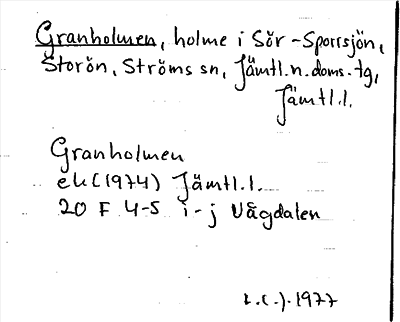 Granholmen, holme i Sör-Sporrsjön,
Storön, Ströms sn, Jämtl.n.doms.tg,
Jämtl.l.
Granholmen
ek(1974) Jämtl.l.
20 F 4-5 i-j Vågdalen
1977